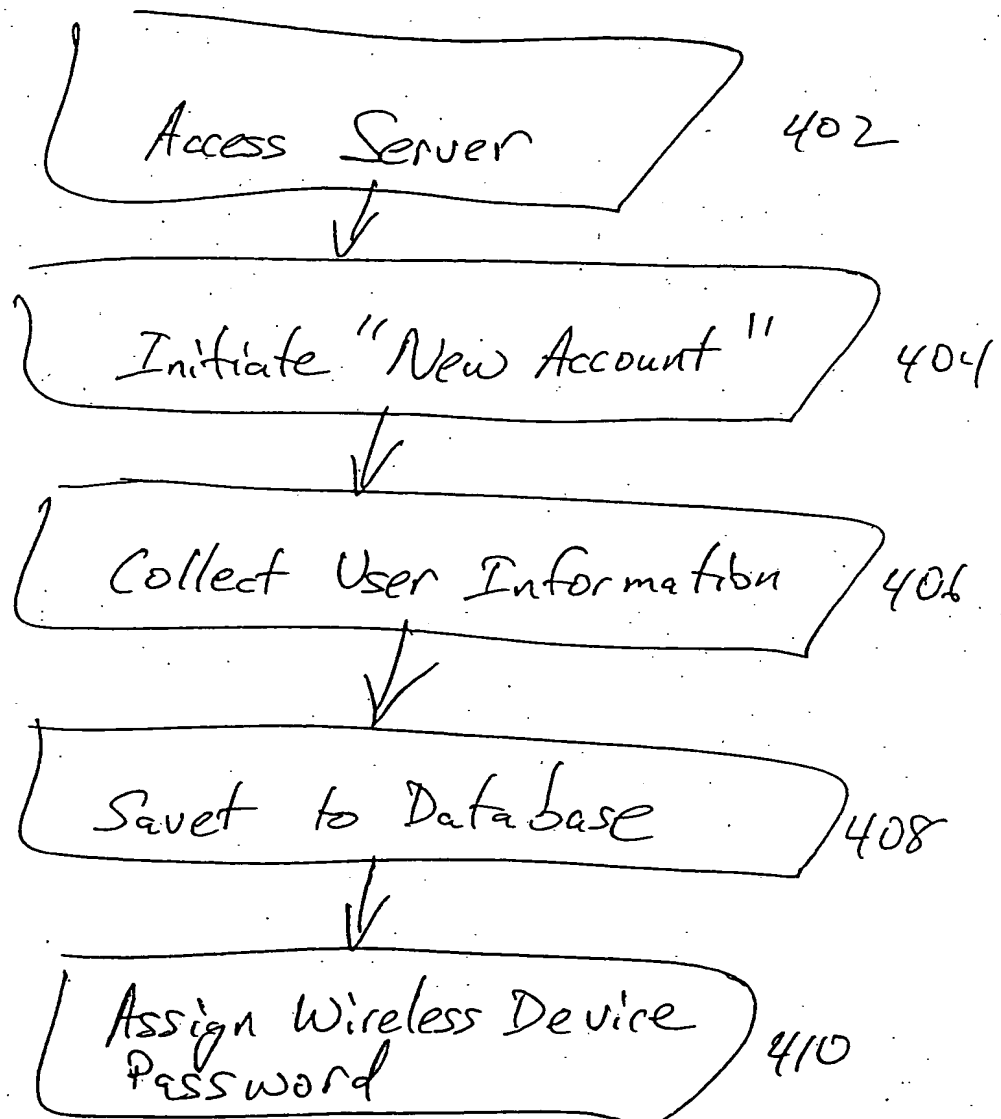 Access Server 402
Initiate "New Account" 404
Collect User Information 406
Savet to Database 408
Assign Wireless Device
Password 410